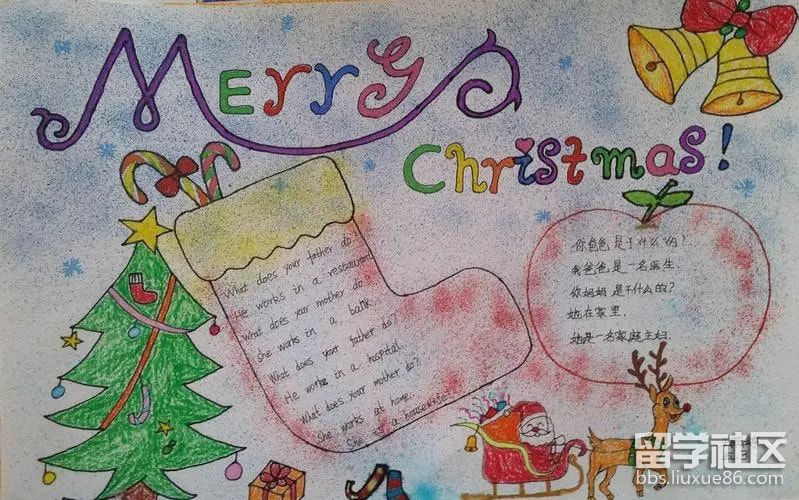 Merry
Christmas!
What does your father do?
He works in a restaurant.
What does your mother do
She works in a bank.
What does your father do?
He works in a hospital.
What does your mother do?
She works at home.
She is a housewife.
你爸爸是干什么的?
我爸爸是一名医生.
你妈妈是干什么的?
她在家里.
她是一名家庭主妇.
留学社区
bbs.liuxue86.com